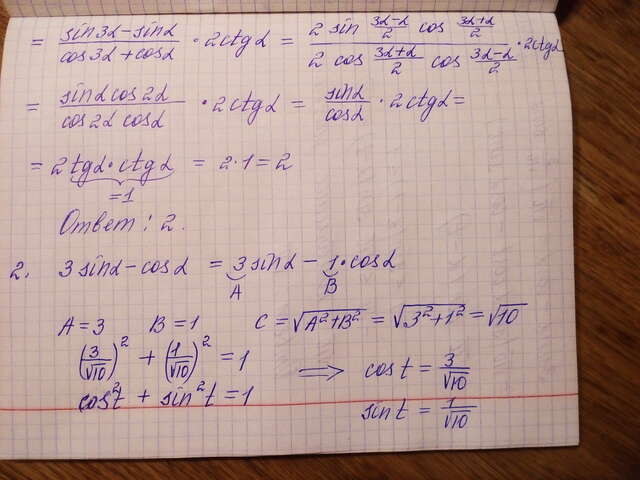 = (sin3α - sinα)/(cos3α + cosα) · 2ctgα = (2 sin (3α-α)/2 cos (3α+α)/2)/(2 cos (3α+α)/2 cos (3α-α)/2) · 2ctgα
= (sinα cos2α)/(cos2α cosα) · 2ctgα = sinα/cosα · 2ctgα =
= 2 tgα · ctgα = 2·1 = 2
=1
Ответ: 2.
2. 3 sinα - cosα = 3 sinα - 1·cosα
A B
A = 3 B = 1 C = √(A²+B²) = √(3²+1²) = √10
(3/√10)² + (1/√10)² = 1 ⟹ cos t = 3/√10
cos²t + sin²t = 1 sin t = 1/√10